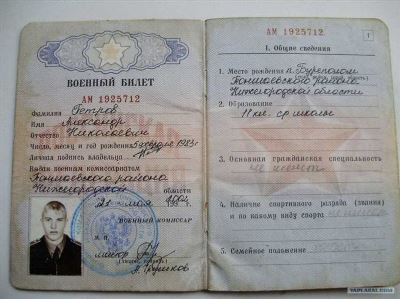 ВОЕННЫЙ БИЛЕТ
АМ 1925712
Фамилия Петров
Имя Александр
Отчество Николаевич
Число, месяц и год рождения 5 февраля 1983г.
Личная подпись владельца
Выдан военным комиссариатом
Тоншаевского района
Нижегородской области
21 мая
ВОЕННЫЙ КОМИССАР
М. П.
майор
АМ 1925712
1
I. Общие сведения
1. Место рождения п. Буреполом
Тоншаевского
Нижегородской области
2. Образование
11 кл. ср школы
3. Основная гражданская специальность
не имеет
4. Наличие спортивного разряда (звания)
и по какому виду спорта не имеет
5. Семейное положение
YAPLAKAL.COM